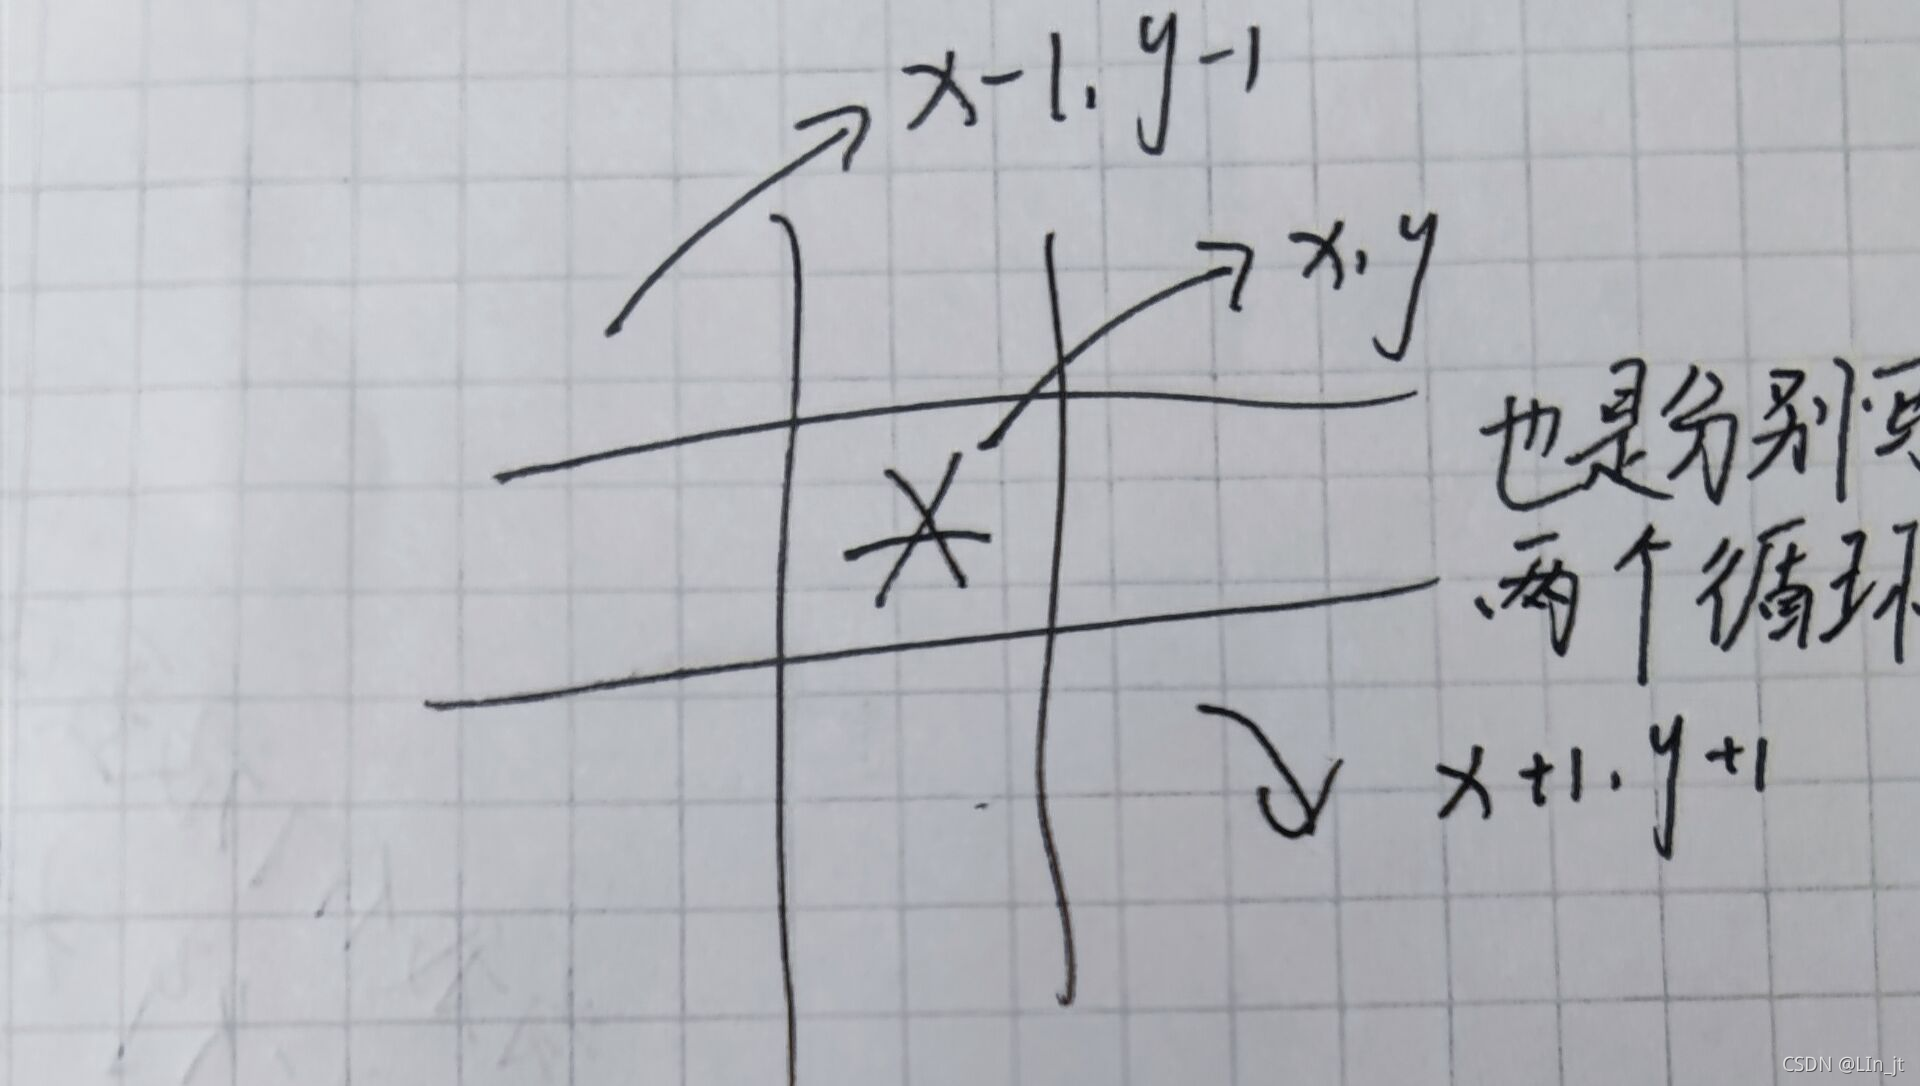 x-1, y-1
x, y
也是分别
两个循环
x+1, y+1
CSDN @LIn_jt